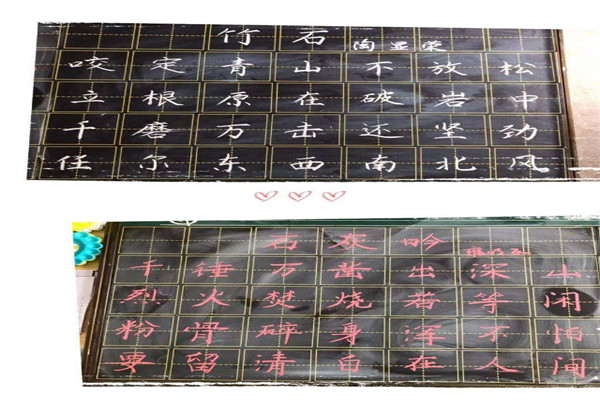 竹石 陶显荣
咬定青山不放松
立根原在破岩中
千磨万击还坚劲
任尔东西南北风
石灰吟
千锤万凿出深山
烈火焚烧若等闲
粉骨碎身浑不怕
要留清白在人间